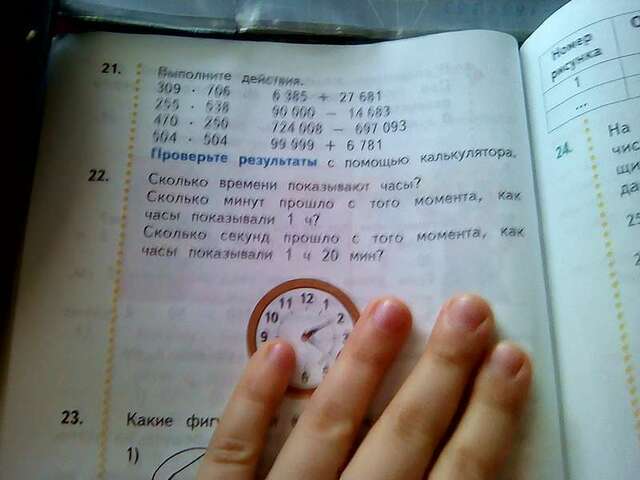 21. Выполните действия.
309 · 706 6 385 + 27 681
255 · 538 90 000 − 14 583
470 · 250 724 008 − 697 093
504 · 504 99 999 + 6 781
Проверьте результаты с помощью калькулятора.
22. Сколько времени показывают часы?
Сколько минут прошло с того момента, как
часы показывали 1 ч?
Сколько секунд прошло с того момента, как
часы показывали 1 ч 20 мин?
12 1 2 3 6 9 10 11
23. Какие
1)
Номер
рисунка
1
...
24. На